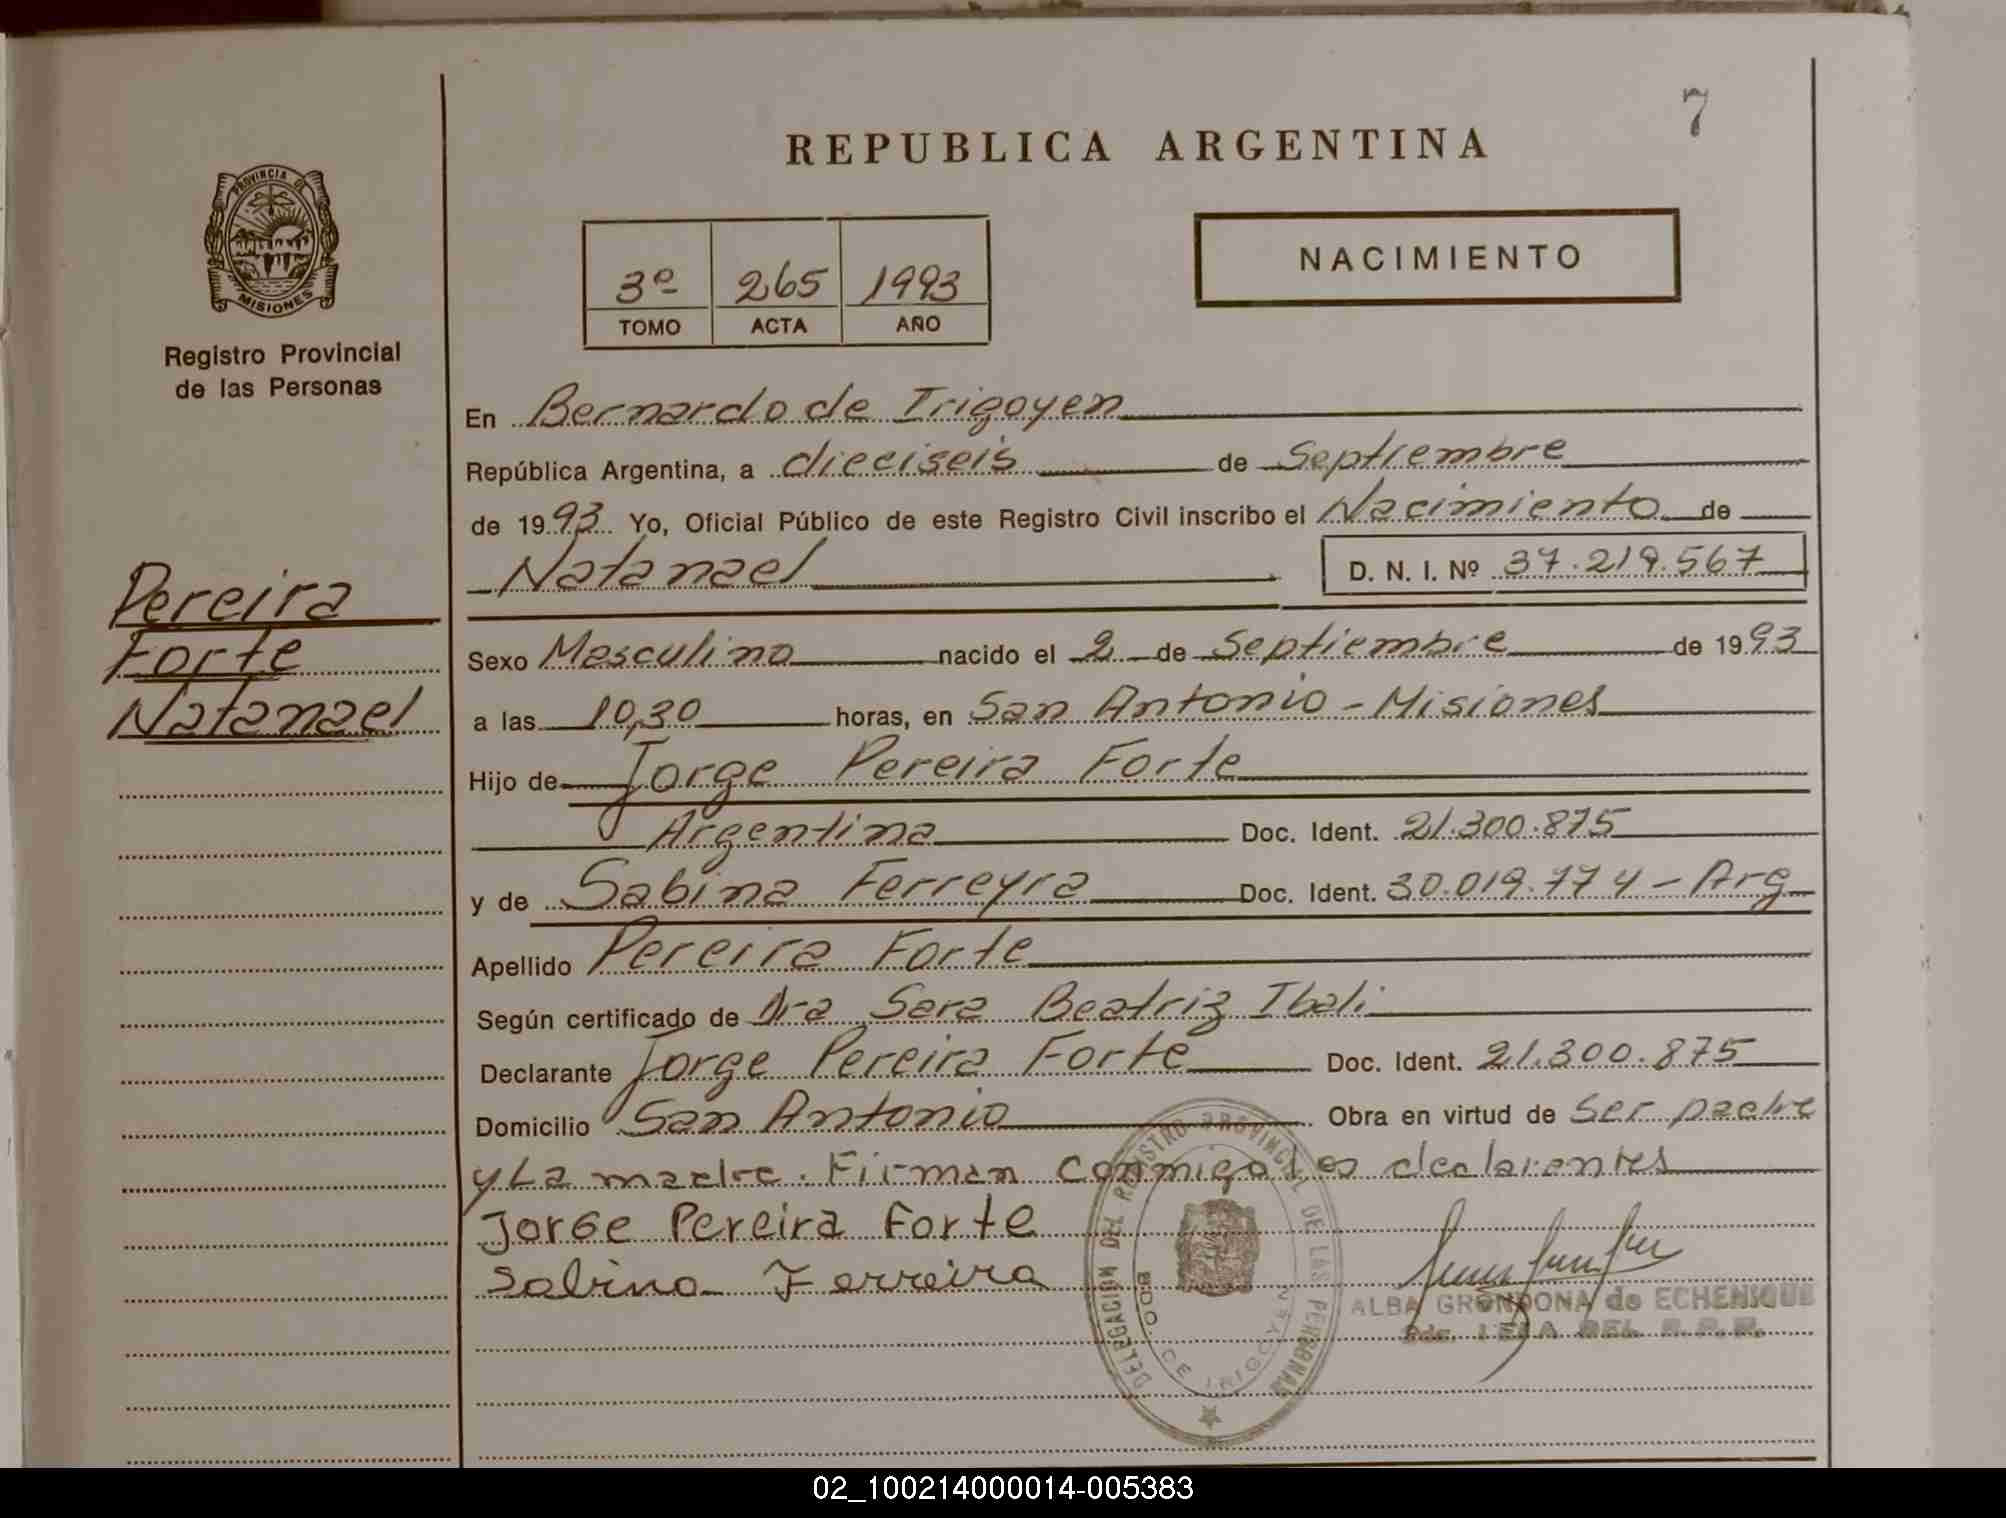 7
REPUBLICA ARGENTINA
PROVINCIA DE
MISIONES
Registro Provincial
de las Personas
3º 265 1993
TOMO ACTA AÑO
NACIMIENTO
En Bernardo de Irigoyen
República Argentina, a dieciseis de Septiembre
de 1993 Yo, Oficial Público de este Registro Civil inscribo el Nacimiento de
Natanael D. N. I. Nº 37.219.567
Pereira
Forte
Natanael
Sexo Masculino nacido el 2 de Septiembre de 1993
a las 10,30 horas, en San Antonio - Misiones
Hijo de Jorge Pereira Forte
Argentina Doc. Ident. 21.300.875
y de Sabina Ferreyra Doc. Ident. 30.019.774 - Arg
Apellido Pereira Forte
Según certificado de Dra Sara Beatriz Ibali
Declarante Jorge Pereira Forte Doc. Ident. 21.300.875
Domicilio San Antonio Obra en virtud de Ser padre
y La madre. Firman conmigo los declarentes
Jorge Pereira Forte
Sabina Ferreira
DELEGACION DEL REGISTRO PROVINCIAL DE LAS PERSONAS
BDO. DE IRIGOYEN
ALBA GRONDONA de ECHENIQUE
DEL R.P.P.
02_100214000014-005383